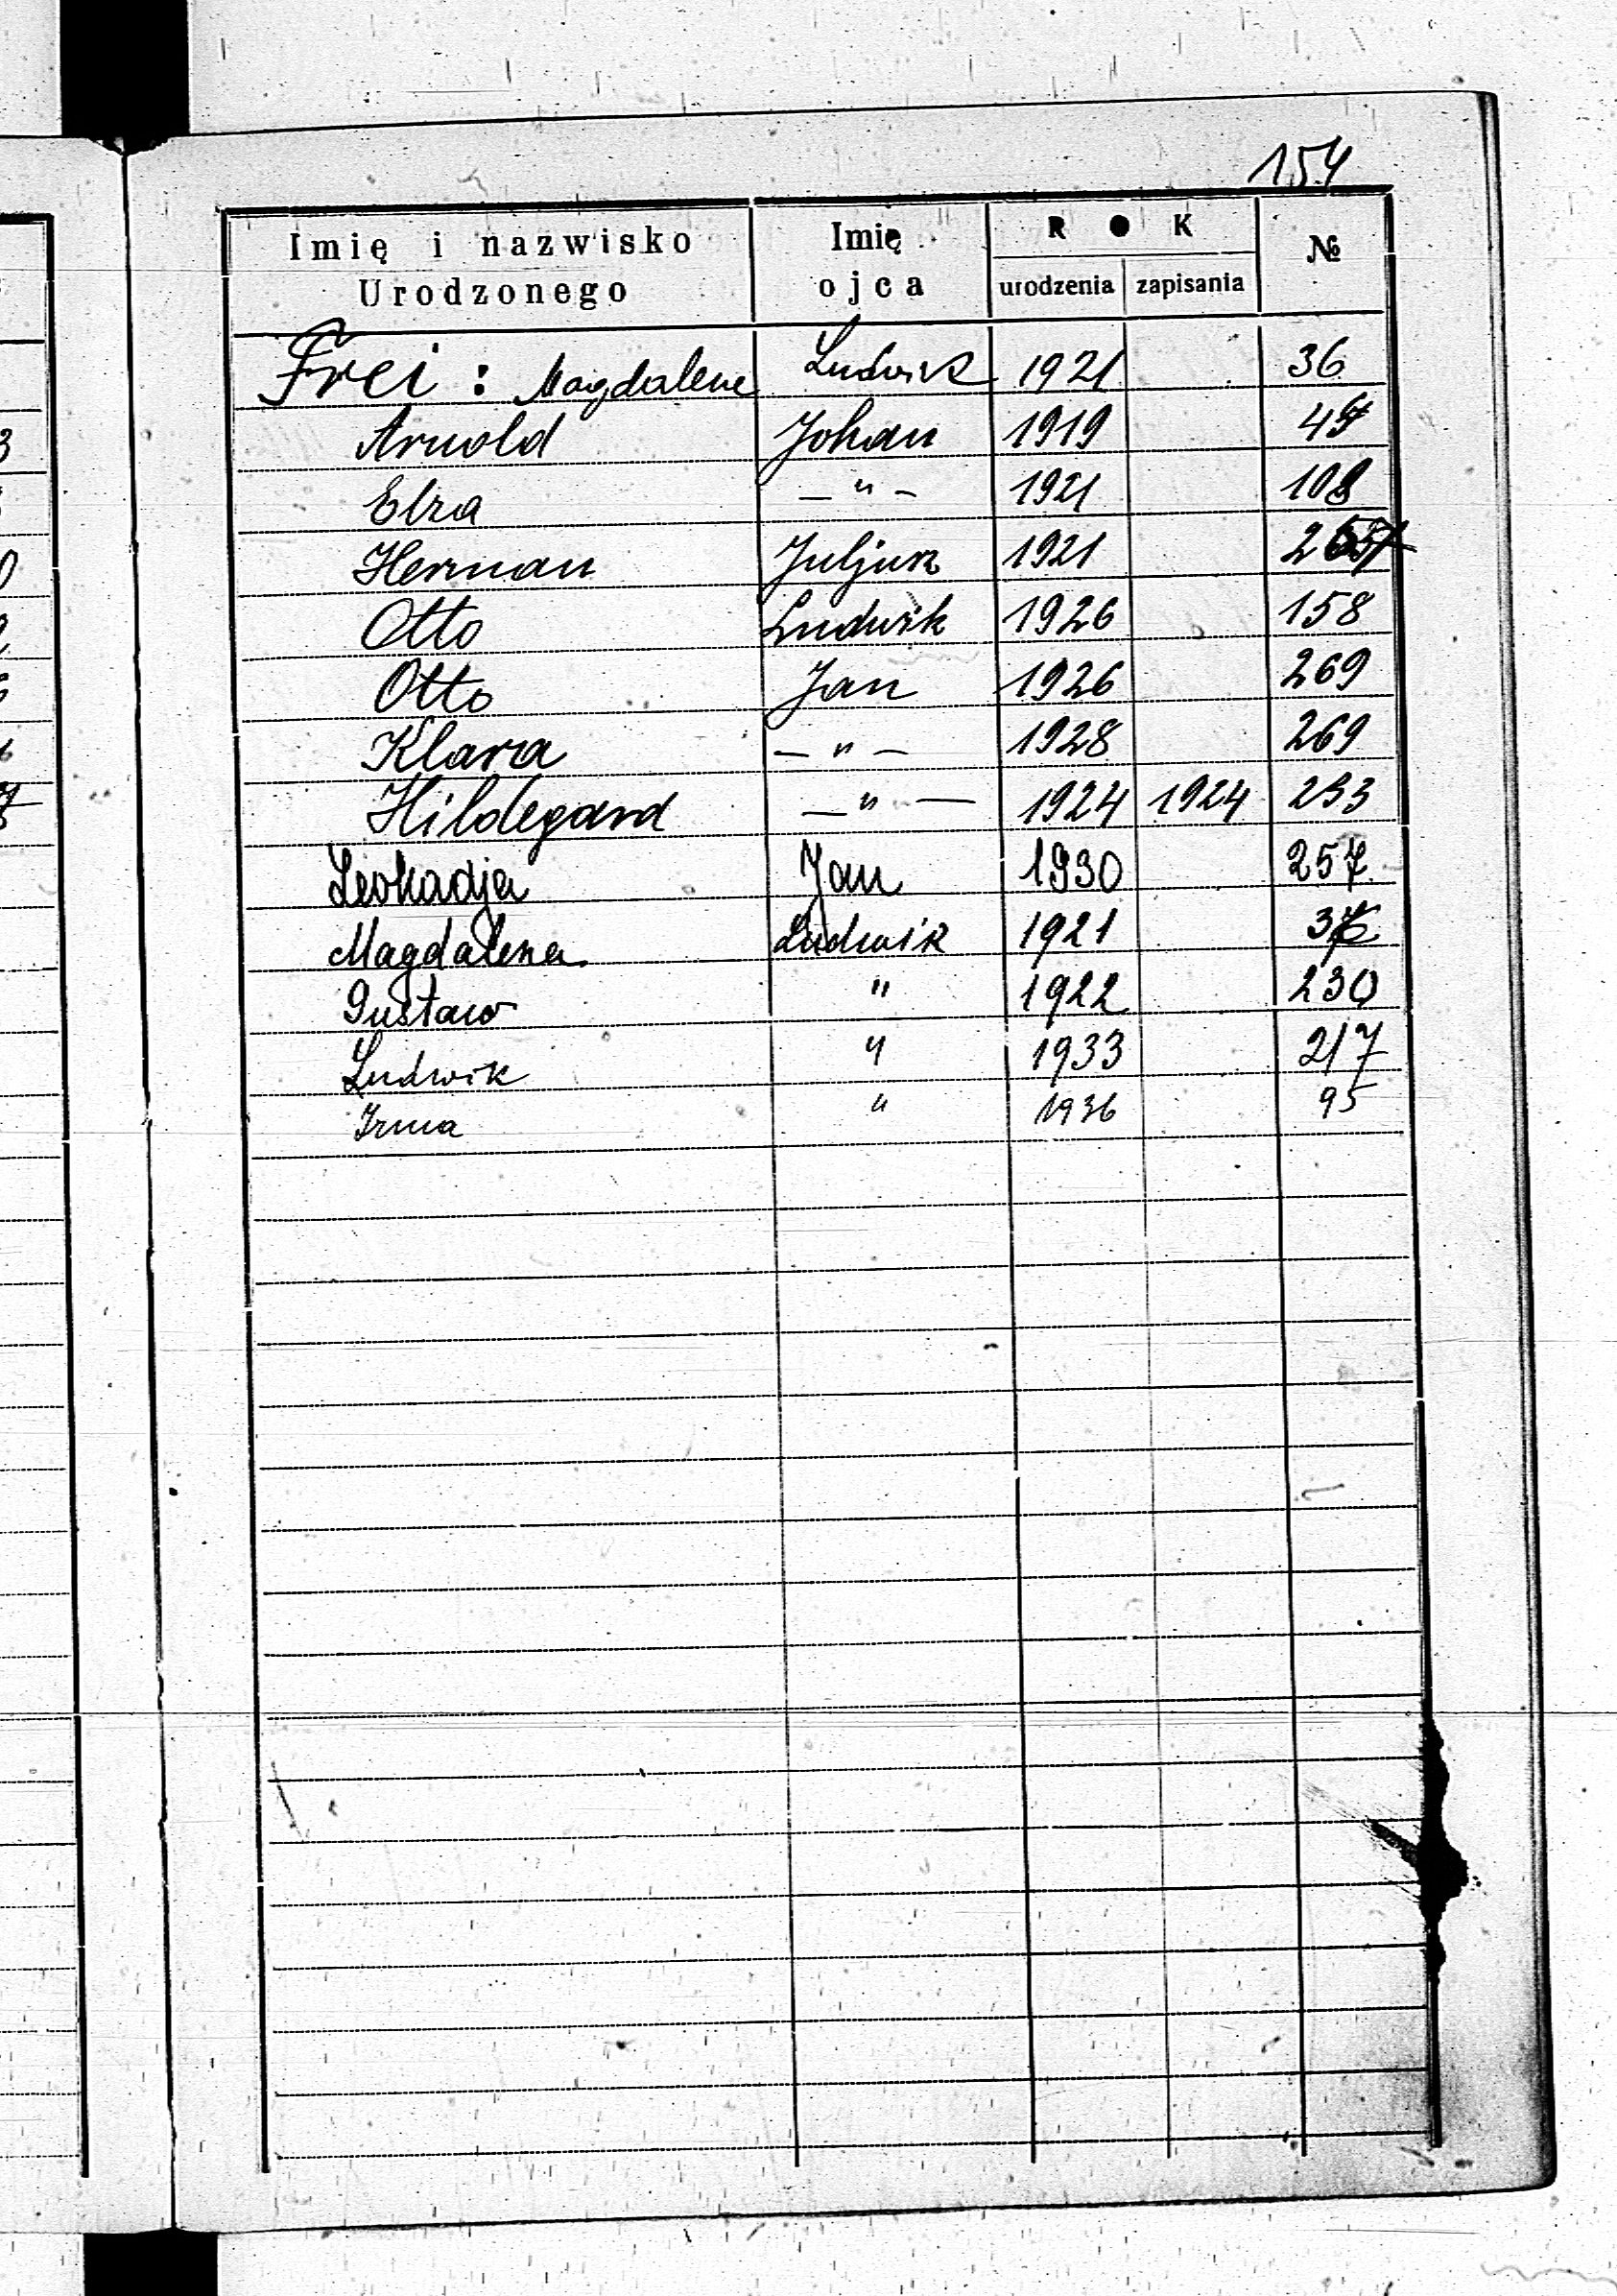 154
Imię i nazwisko Urodzonego | Imię ojca | ROK urodzenia | zapisania | №
Frei : Magdalene | Ludwik | 1921 | | 36
Arnold | Johan | 1919 | |
Elza | — " — | 1921 | | 108
Herman | Juljusz | 1921 | |
Otto | Ludwik | 1926 | | 158
Otto | Jan | 1926 | | 269
Klara | — " — | 1928 | | 269
Hildegard | — " — | 1924 | 1924 | 293
Leokadja | Jan | 1930 | | 257
Magdalena | Ludwik | 1921 | |
Gustaw | " | 1922 | | 230
Ludwik | " | 1933 | | 217
Irma | " | 1936 | | 95